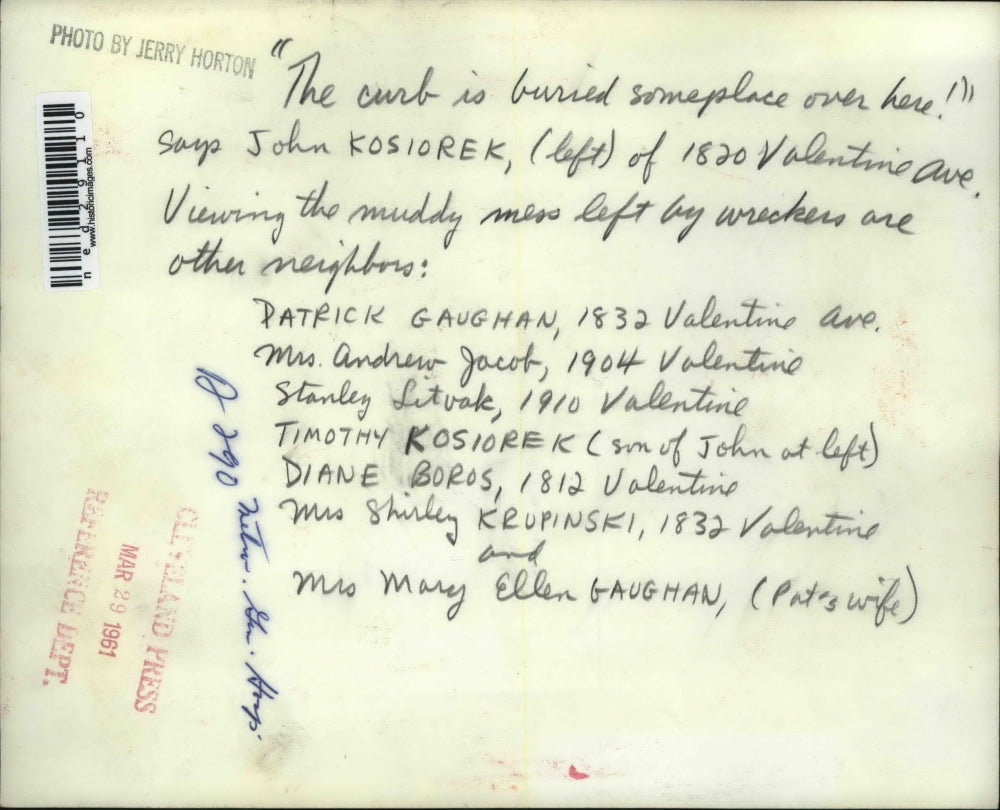 PHOTO BY JERRY HORTON
""The curb is buried someplace over here!""
says John KOSIOREK, (left) of 1820 Valentine Ave.
Viewing the muddy mess left by wreckers are
other neighbors:
PATRICK GAUGHAN, 1832 Valentine Ave.
Mrs. Andrew Jacob, 1904 Valentine
Stanley Litvak, 1910 Valentine
TIMOTHY KOSIOREK (son of John at left)
DIANE BOROS, 1812 Valentine
Mrs Shirley KRUPINSKI, 1832 Valentine
and
Mrs Mary Ellen GAUGHAN, (Pat's wife)
ned29110
www.historicimages.com
290 Metro. Gen. Hosp.
CLEVELAND PRESS
MAR 29 1961
REFERENCE DEPT.